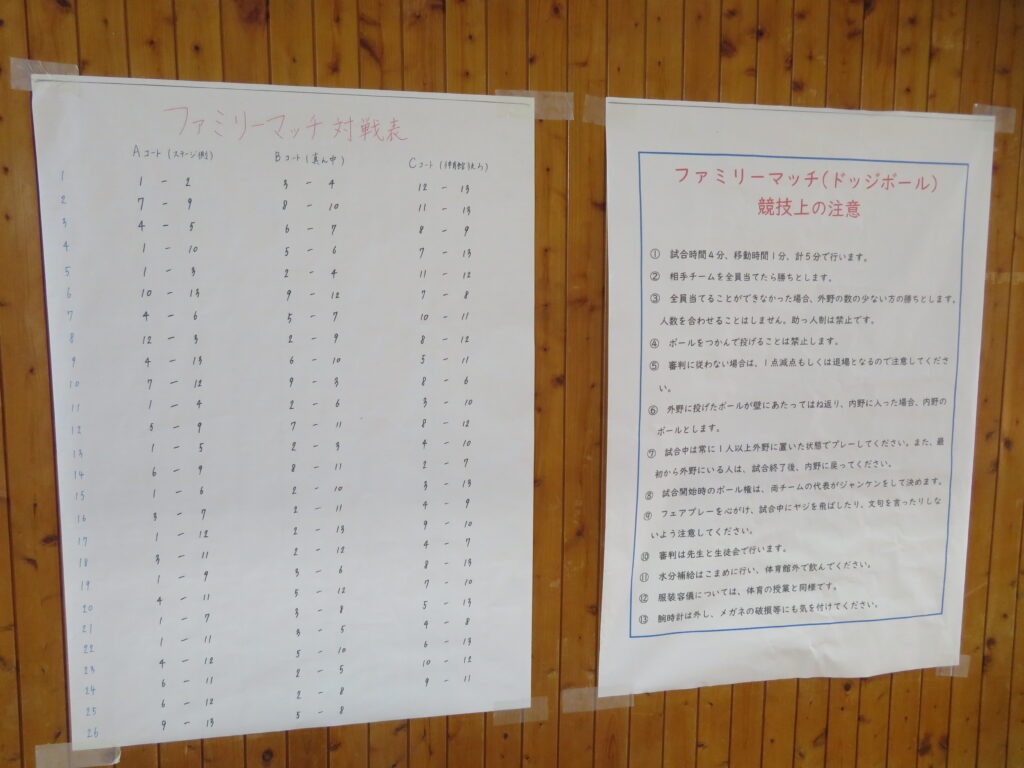 ファミリーマッチ 対戦表
Aコート(ステージ側) Bコート(真ん中) Cコート(体育館後ろ)
1 1 - 2 3 - 4 12 - 13
2 7 - 9 8 - 10 11 - 13
3 4 - 5 6 - 7 8 - 9
4 1 - 10 5 - 6 7 - 13
5 1 - 3 2 - 4 11 - 12
6 10 - 13 9 - 12 7 - 8
7 4 - 6 5 - 7 10 - 11
8 12 - 3 2 - 9 8 - 12
9 4 - 13 6 - 10 5 - 11
10 7 - 12 9 - 3 8 - 6
11 1 - 4 2 - 6 3 - 10
12 5 - 9 7 - 11 8 - 12
13 1 - 5 2 - 3 4 - 10
14 6 - 9 8 - 11 2 - 7
15 1 - 6 2 - 10 3 - 13
16 3 - 7 2 - 11 4 - 9
17 1 - 12 2 - 13 9 - 10
18 3 - 11 2 - 12 4 - 7
19 1 - 9 3 - 6 8 - 13
20 4 - 11 5 - 12 7 - 10
21 1 - 7 3 - 8 5 - 13
22 1 - 11 3 - 5 4 - 8
23 4 - 12 5 - 10 6 - 13
24 6 - 11 2 - 5 10 - 12
25 6 - 12 2 - 8 9 - 11
26 9 - 13 5 - 8
ファミリーマッチ(ドッジボール)
競技上の注意
① 試合時間4分、移動時間1分、計5分で行います。
② 相手チームを全員当てたら勝ちとします。
③ 全員当てることができなかった場合、外野の数の少ない方の勝ちとします。
人数を合わせることはしません。助っ人制は禁止です。
④ ボールをつかんで投げることは禁止します。
⑤ 審判に従わない場合は、1点減点もしくは退場となるので注意してくださ
い。
⑥ 外野に投げたボールが壁にあたってはね返り、内野に入った場合、内野の
ボールとします。
⑦ 試合中は常に1人以上外野に置いた状態でプレーしてください。また、最
初から外野にいる人は、試合終了後、内野に戻ってください。
⑧ 試合開始時のボール権は、両チームの代表がジャンケンをして決めます。
⑨ フェアプレーを心がけ、試合中にヤジを飛ばしたり、文句を言ったりしな
いよう注意してください。
⑩ 審判は先生と生徒会で行います。
⑪ 水分補給はこまめに行い、体育館外で飲んでください。
⑫ 服装容儀については、体育の授業と同様です。
⑬ 腕時計は外し、メガネの破損等にも気を付けてください。